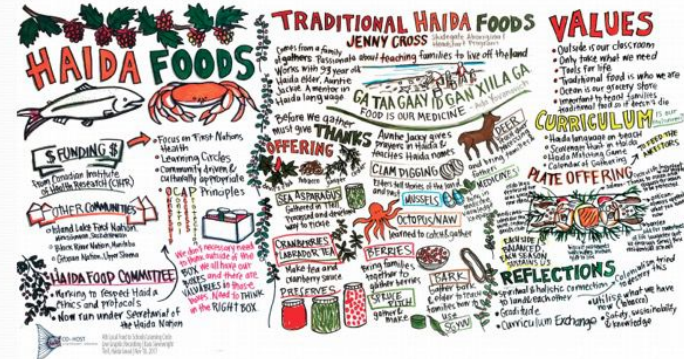 HAIDA FOODS
$ FUNDING $
From Canadian Institute
of Health Research (CIHR)
• Focus on First Nations
Health
• Learning Circles
• Community driven &
culturally appropriate
• OCAP Principles
OTHER COMMUNITIES
• Island Lake First Nation
• Black River Nation, Manitoba
• Gitxsan Nation, Upper Skeena
HAIDA FOOD COMMITTEE
• Working to respect Haida
ethics and protocols
• Now run under Secretariat of
the Haida Nation
We don't necessarily need
to think outside of the
BOX, we all have our
boxes and there are
VALUABLES in those
boxes. Need to THINK
in the RIGHT BOX.
CO-HOST
TRADITIONAL HAIDA FOODS
JENNY CROSS
Skidegate Aboriginal
Headstart Program
Comes from a family
of gatherers. Passionate about teaching families to live off the land
Works with 93 year old
Haida elder, Auntie
Jackie. A mentor in
Haida language
GA TAA GAAY ID GAN XIILA GA
FOOD IS OUR MEDICINE
Before we gather
must give THANKS
OFFERING
Auntie Jacky gives
prayers in Haida &
teaches Haida names
DEER
CLAM DIGGING
Elders tell stories of the land
MUSSELS
OCTOPUS/NAW
learned to catch & gather
SEA ASPARAGUS
Gathered &
prepared and develop
way to pickle
CRANBERRIES
LABRADOR TEA
Make tea and
cranberry sauce
PRESERVES
BERRIES
Bring families
together to
gather berries
SPRUCE
PITCH
gather &
make
BARK
gather bark
& older to teach
families how to
use
MEDICINES
VALUES
• Outside is our classroom
• Only take what we need
• Tools for life
• Traditional food is who we are
• Ocean is our grocery store
• important to teach families
traditional food so it doesn't die
CURRICULUM
• Haida language on beach
• Scavenger Hunt in Haida
• Haida Matching Game
• Calendar of Gathering
FEED THE
ANCESTORS
PLATE OFFERING
EACH SIDE
BALANCED
EACH SEASON
SUSTAINS US
REFLECTIONS
• spiritual & holistic connection
to land & each other
• Gratitude
• Curriculum Exchange
• Colonialism tried
to destroy this
• utilise what we have
now (tobacco)
• Safety, sustainability
& knowledge